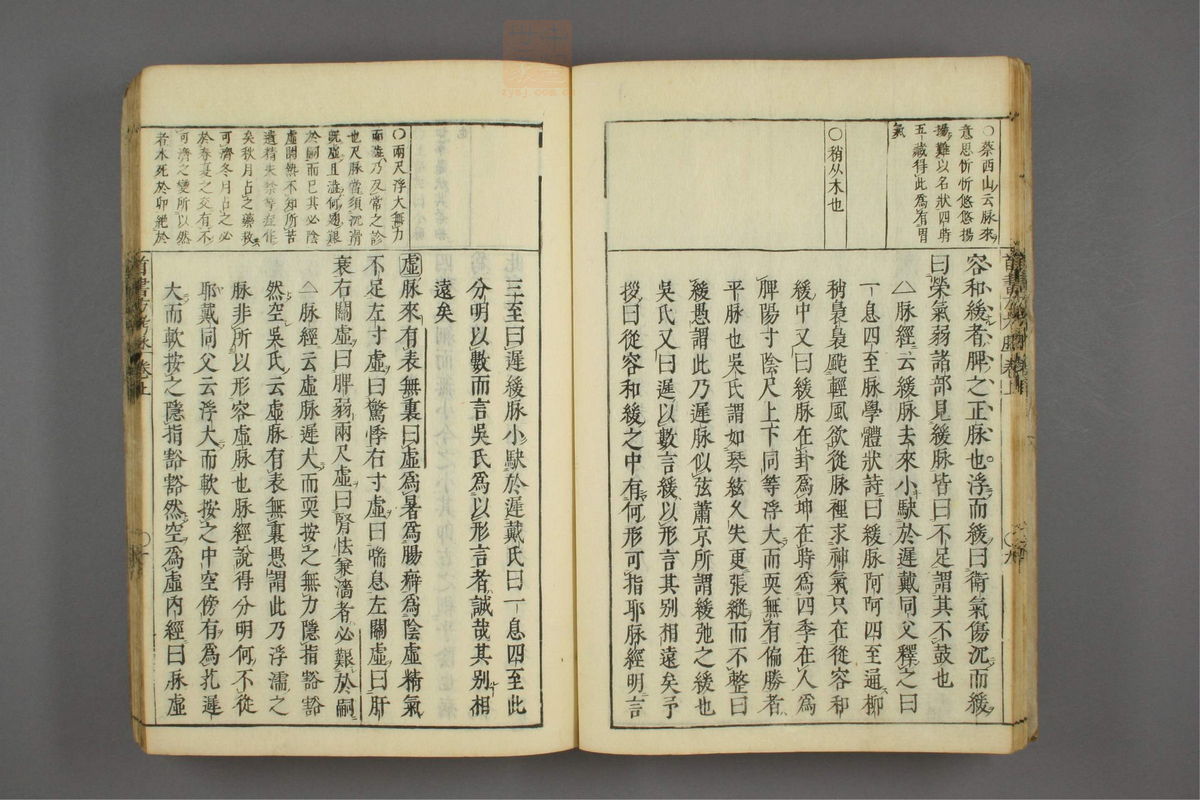 〇蔡西山云脉來
意思忻忻悠悠揚
揚難以名狀四時
五藏得此爲有胃
氣
〇稍从木也
容和緩者脾之正脉也浮而緩曰衛氣傷沉而緩
曰榮氣弱諸部見緩脉皆曰不足謂其不鼓也
脉經云緩脉去來小駃於遲戴同父釋之曰
一息四至脉學體狀詩曰緩脉阿阿四至通柳
稍裊裊颭輕風欲從脉裡求神氣只在從容和
緩中又曰緩脉在卦爲坤在時爲四季在人爲
脾陽寸陰尺上下同等浮大而耎無有偏勝者
平脉也吳氏謂如琴絃久失更張縱而不整曰
緩愚謂此乃遲脉似弦蕭京所謂緩弛之緩也
吳氏又曰遲以數言緩以形言其別相遠矣予
按曰從容和緩之中有何形可指耶脉經明言
〇兩尺浮大無力
而陰乃反常之診
也尺脉當須沉滑
既虛且濇何趐艱
於嗣而已其必陰
虛閉熱不知所苦
遺精失禁等症作
矣秋月占之藥救
可濟冬月占之必
於春夏之交有不
可濟之變所以然
者水死於卯絕於
三至曰遲緩脉小駃於遲戴氏曰一息四至此
分明以數而言吳氏爲以形言者誠哉其別相
遠矣
虛脉來有表無裏曰虛爲暑爲腸癖爲陰虛精氣
不足左寸虛曰驚悸右寸虛曰喘息左關虛曰肝
衰右關虛曰脾弱兩尺虛曰腎怯兼濇者必艱於嗣
脉經云虛脉遲大而耎按之無力隱指豁豁
然空吳氏云虛脉有表無裏愚謂此乃浮濡之
脉非所以形容虛脉也脉經說得分明何不從
耶戴同父云浮大而軟按之中空傍有爲芤遲
大而軟按之隱指豁豁然空爲虛內經曰脉虛